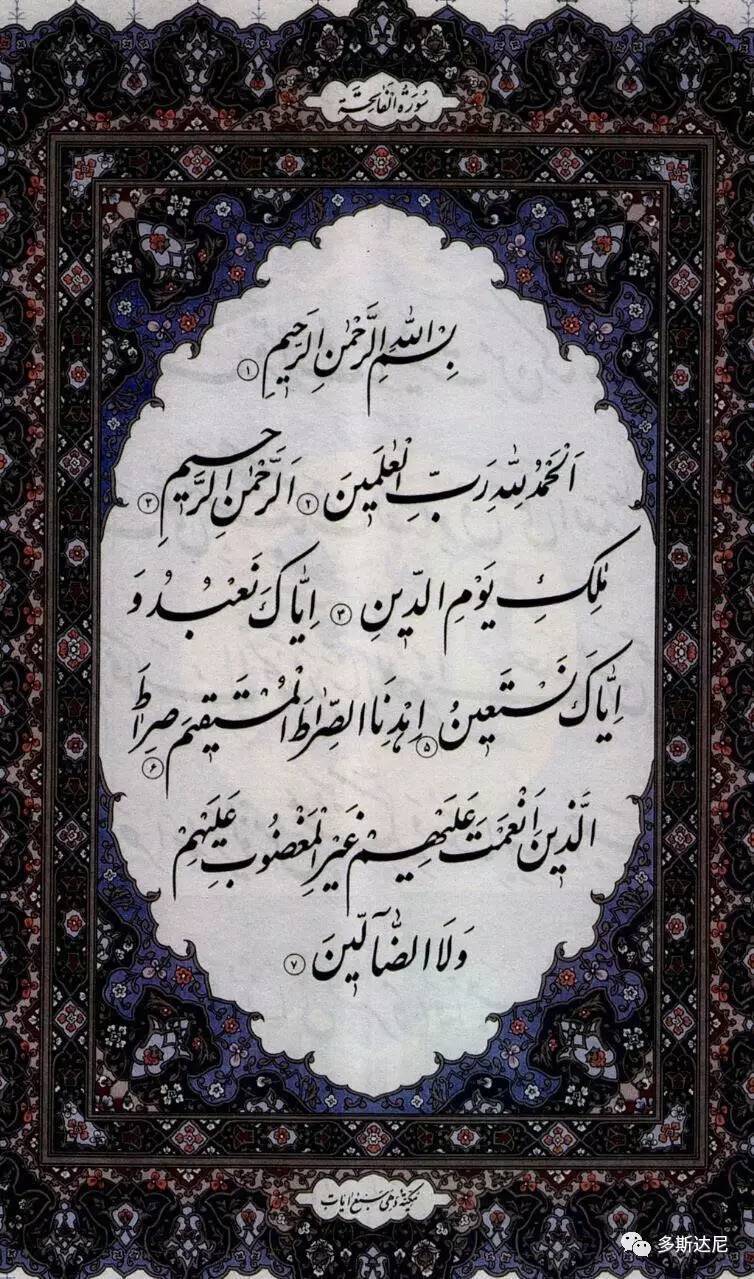 سُورَةُ الْفَاتِحَة
بِسْمِ اللهِ الرَّحْمٰنِ الرَّحِيمِ ۱
اَلْحَمْدُ لِلّٰهِ رَبِّ الْعٰلَمِينَ ۲ اَلرَّحْمٰنِ الرَّحِيمِ ۳
مٰلِكِ يَوْمِ الدِّينِ ۴ اِيَّاكَ نَعْبُدُ وَ
اِيَّاكَ نَسْتَعِينُ ۵ اِهْدِنَا الصِّرٰاطَ الْمُسْتَقِيمَ ۶ صِرٰاطَ
الَّذِينَ اَنْعَمْتَ عَلَيْهِمْ غَيْرِ الْمَغْضُوبِ عَلَيْهِمْ
وَلَا الضَّآلِّينَ ۷
مكية وهي سبع ايات
多斯达尼